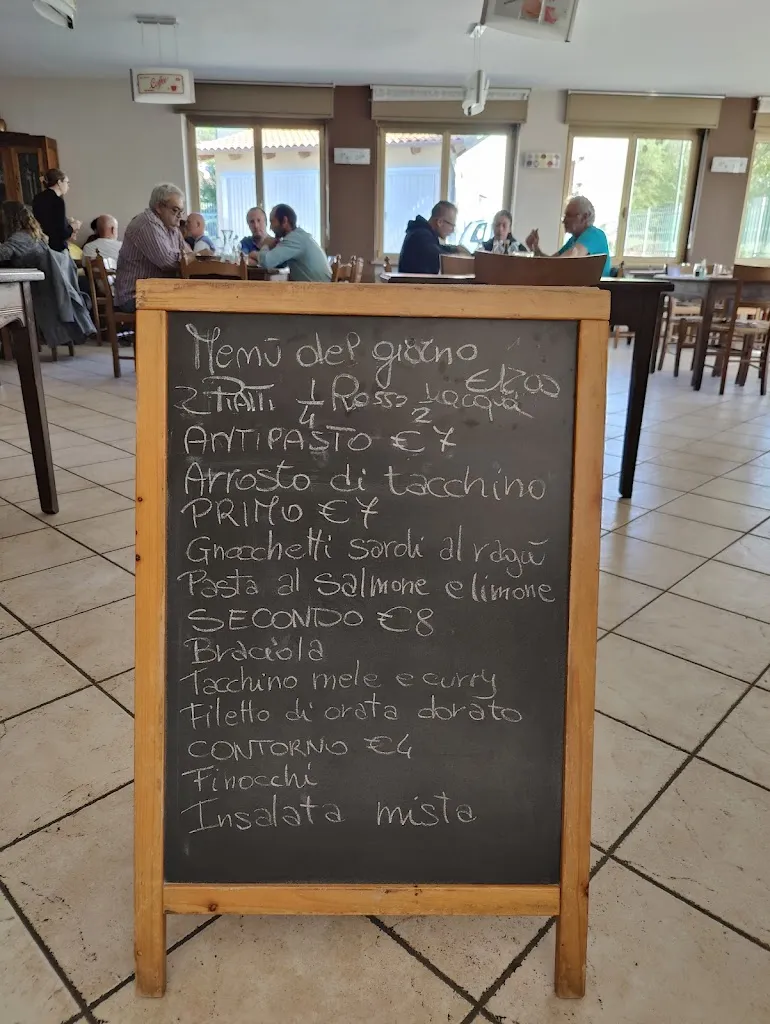 Menù del giorno
€12,00
2 PIATTI 1/4 Rosso 1/2 acqua
ANTIPASTO €7
Arrosto di tacchino
PRIMO €7
Gnocchetti sardi al ragù
Pasta al salmone e limone
SECONDO €8
Braciola
Tacchino mele e curry
Filetto di orata dorato
CONTORNO €4
Finocchi
Insalata mista